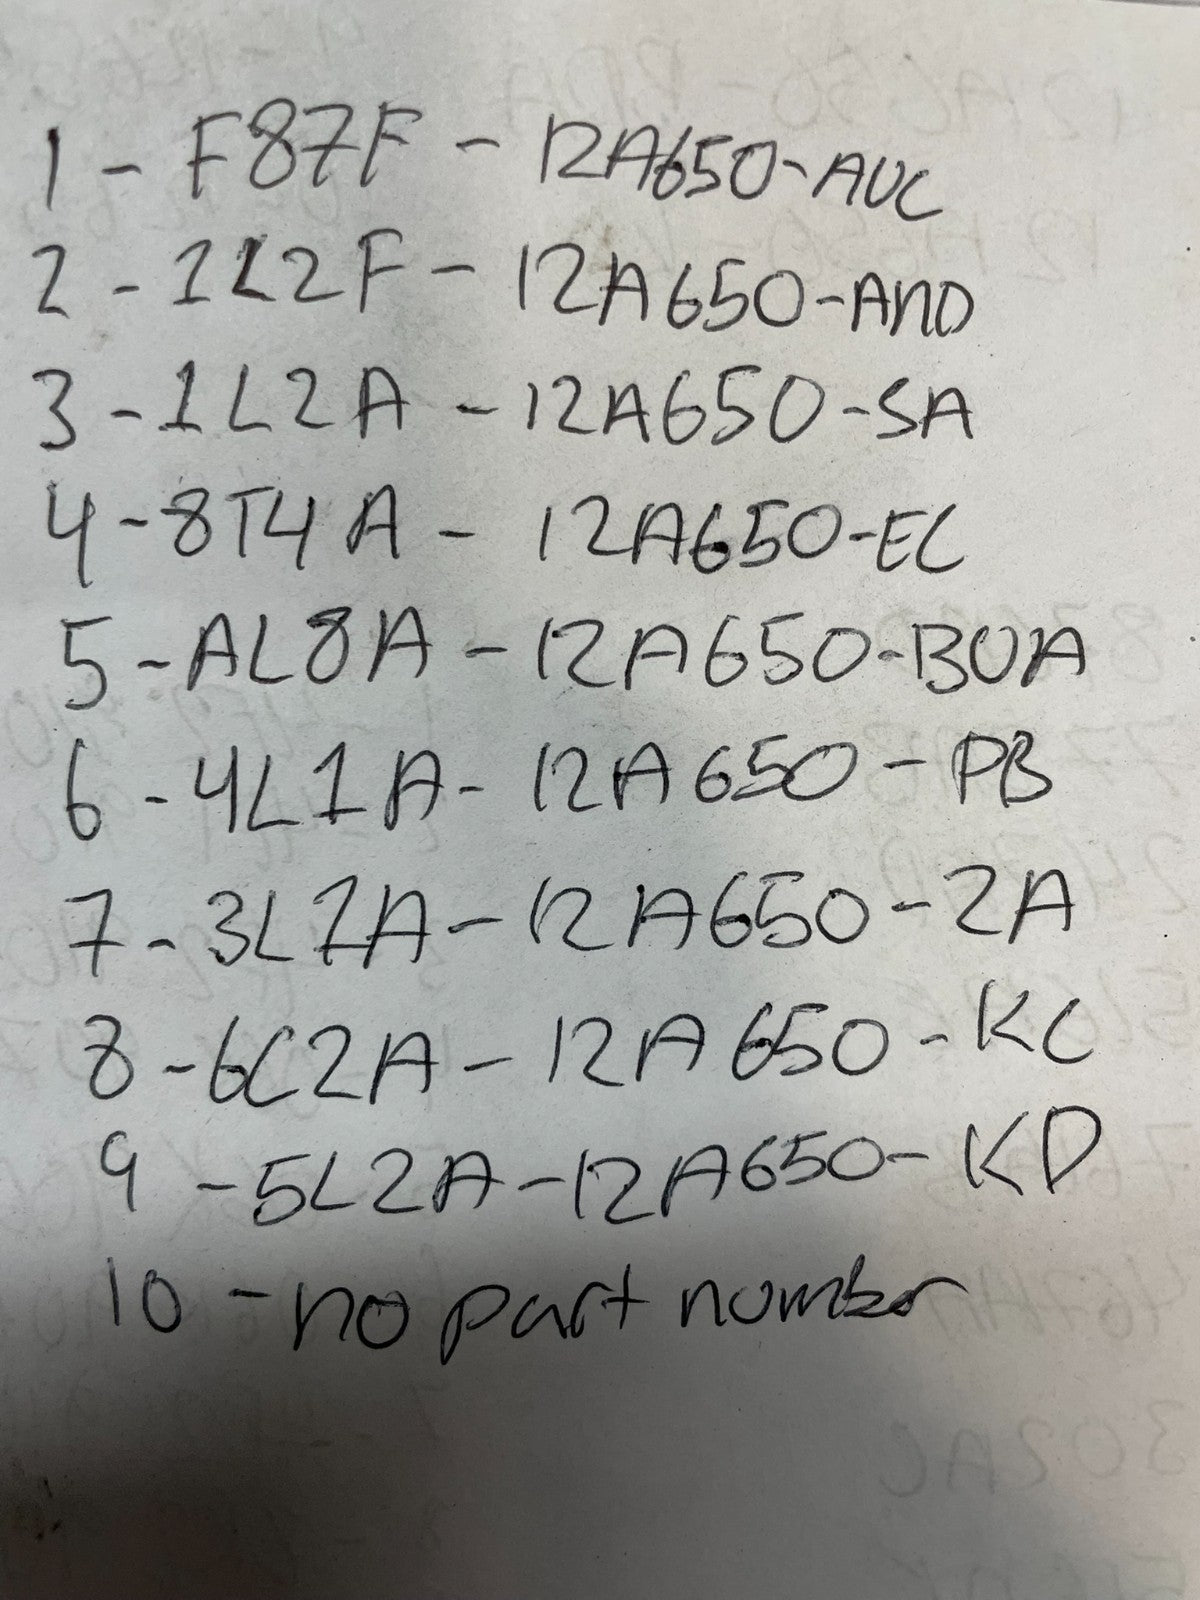 1 - F87F - 12A650-AUC
2 - 1L2F - 12A650-AND
3 - 1L2A - 12A650-SA
4 - 8T4A - 12A650-EC
5 - AL8A - 12A650-BUA
6 - 4L1A - 12A650 - PB
7 - 3L7A - 12A650 - ZA
8 - 6C2A - 12A650 - KC
9 - 5L2A - 12A650 - KD
10 - no part number